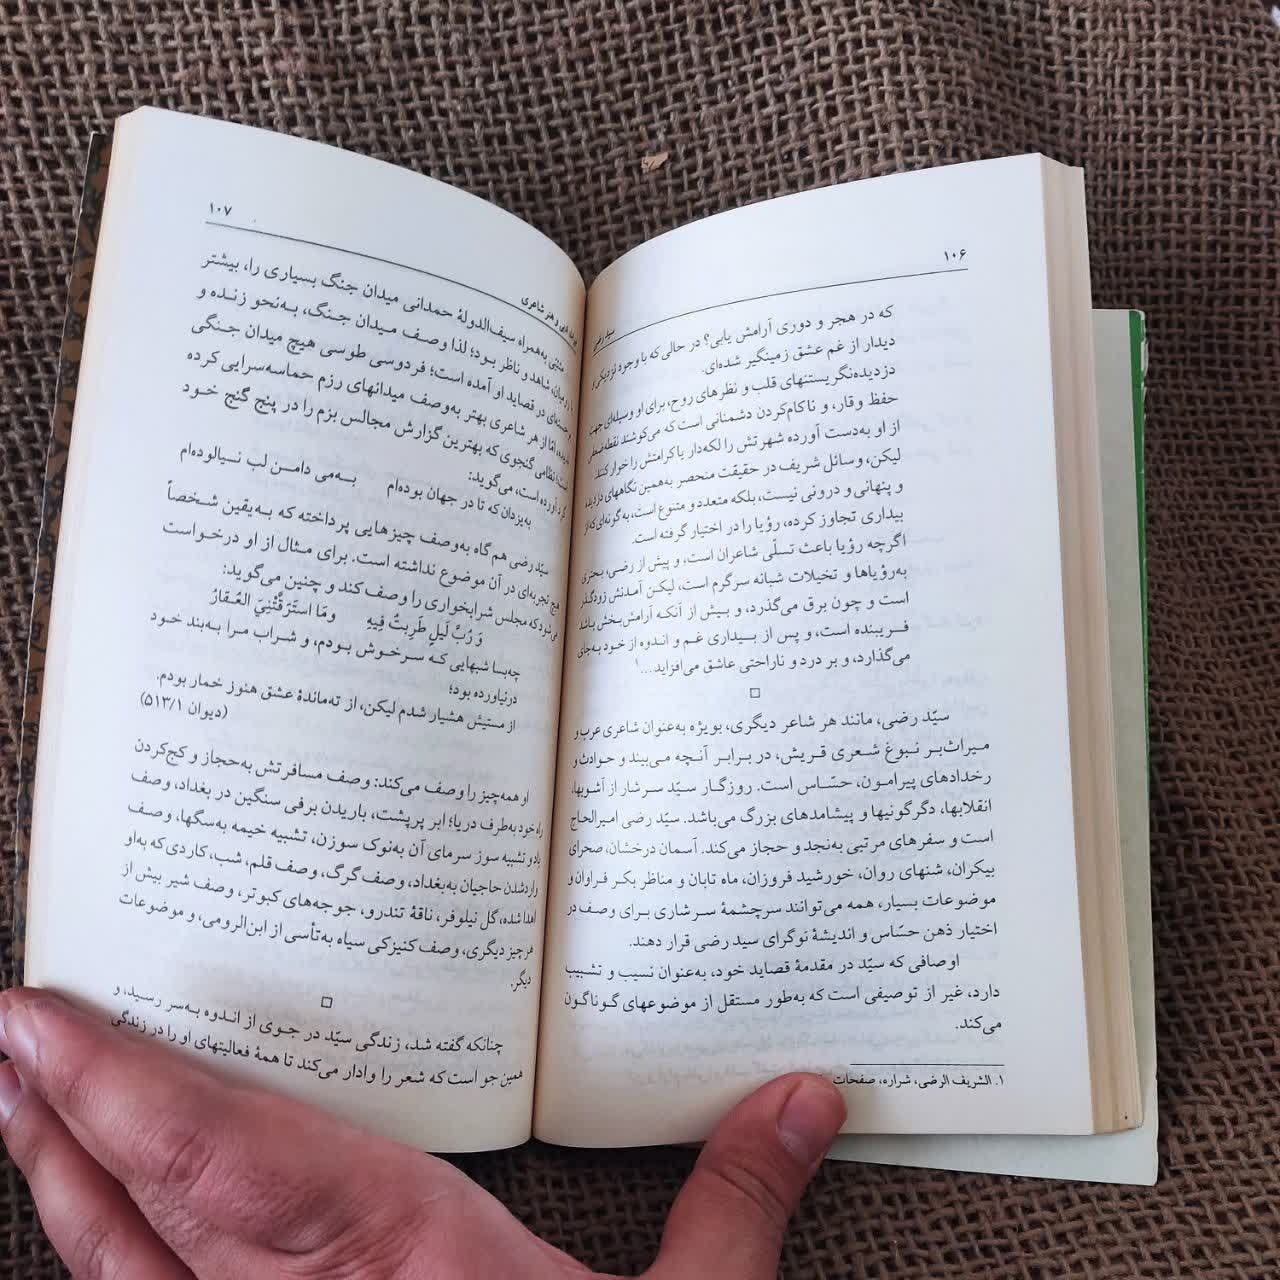 ۱۰۶
سید رضی
که در هجر و دوری آرامش یابی؟ در حالی که با وجود نزدیکی و
دیدار از غم عشق زمینگیر شده‌ای.
دزدیده‌نگریستنهای قلب و نظرهای روح، برای او وسیله‌ای جهت
حفظ وقار، و ناکام‌کردن دشمنانی است که می‌کوشند نقطه ضعفی
از او به‌دست آورده شهرتش را لکه‌دار یا کرامتش را خوار کنند.
لیکن، وسائل شریف در حقیقت منحصر به‌همین نگاههای دزدیده
و پنهانی و درونی نیست، بلکه متعدد و متنوع است، به گونه‌ای که از
بیداری تجاوز کرده، رؤیا را در اختیار گرفته است.
اگرچه رؤیا باعث تسلّی شاعران است، و پیش از رضی، بحتری
به‌رؤیاها و تخیلات شبانه سرگرم است، لیکن آمدنش زودگذر
است و چون برق می‌گذرد، و بیش از آنکه آرامش‌بخش باشد
فریبنده است، و پس از بیداری غم و اندوه از خود به‌جای
می‌گذارد، و بر درد و ناراحتی عاشق می‌افزاید...۱
سیّد رضی، مانند هر شاعر دیگری، بویژه به‌عنوان شاعری عرب و
میراث‌بر نبوغ شعری قریش، در برابر آنچه می‌بیند و حوادث و
رخدادهای پیرامون، حسّاس است. روزگار سیّد سرشار از آشوبها،
انقلابها، دگرگونیها و پیشامدهای بزرگ می‌باشد. سیّد رضی امیرالحاج
است و سفرهای مرتبی به‌نجد و حجاز می‌کند. آسمان درخشان، صحرای
بیکران، شنهای روان، خورشید فروزان، ماه تابان و مناظر بکر فراوان و
موضوعات بسیار، همه می‌توانند سرچشمهٔ سرشاری برای وصف در
اختیار ذهن حسّاس و اندیشهٔ نوگرای سید رضی قرار دهند.
اوصافی که سیّد در مقدمهٔ قصاید خود، به‌عنوان نسیب و تشبیب
دارد، غیر از توصیفی است که به‌طور مستقل از موضوعهای گوناگون
می‌کند.
۱. الشریف الرضی، شراره، صفحات
۱۰۷
و هنر شاعری
متنبّی به‌همراه سیف‌الدولهٔ حمدانی میدان جنگ بسیاری را، بیشتر
رومیان، شاهد و ناظر بود؛ لذا وصف میدان جنگ، به‌نحو زنده و
برجسته‌ای در قصاید او آمده است؛ فردوسی طوسی هیچ میدان جنگی
ندیده، امّا از هر شاعری بهتر به‌وصف میدانهای رزم حماسه‌سرایی کرده
است؛ نظامی گنجوی که بهترین گزارش مجالس بزم را در پنج گنج خود
گرد آورده است، می‌گوید:
به‌یزدان که تا در جهان بوده‌ام به‌می دامن لب نیالوده‌ام
سیّد رضی هم گاه به‌وصف چیزهایی پرداخته که به‌یقین شخصاً
هیچ تجربه‌ای در آن موضوع نداشته است. برای مثال از او درخواست
می‌شود که مجلس شرابخواری را وصف کند و چنین می‌گوید:
وَ رُبَّ لَیلٍ طَرِبتُ فِیهِ ومَا استَرَقَّتْنِیَ العُقارُ
چه‌بسا شبهایی که سرخوش بودم، و شراب مرا به‌بند خود
درنیاورده بود؛
از مستیش هشیار شدم لیکن، از ته‌ماندهٔ عشق هنوز خمار بودم.
(دیوان ۵۱۳/۱)
او همه‌چیز را وصف می‌کند: وصف مسافرتش به‌حجاز و کج‌کردن
راه خود به‌طرف دریا؛ ابر پرپشت، باریدن برفی سنگین در بغداد، وصف
باد و تشبیه سوز سرمای آن به‌نوک سوزن، تشبیه خیمه به‌سگها، وصف
واردشدن حاجیان به‌بغداد، وصف گرگ، وصف قلم، شب، کاردی که به‌او
اهدا شده، گل نیلوفر، ناقهٔ تندرو، جوجه‌های کبوتر، وصف شیر بیش از
هر چیز دیگری، وصف کنیزکی سیاه به‌تأسی از ابن‌الرومی، و موضوعات
دیگر.
چنانکه گفته شد، زندگی سیّد در جوی از اندوه به‌سر رسید، و
همین جو است که شعر را وادار می‌کند تا همهٔ فعالیتهای او را در زندگی